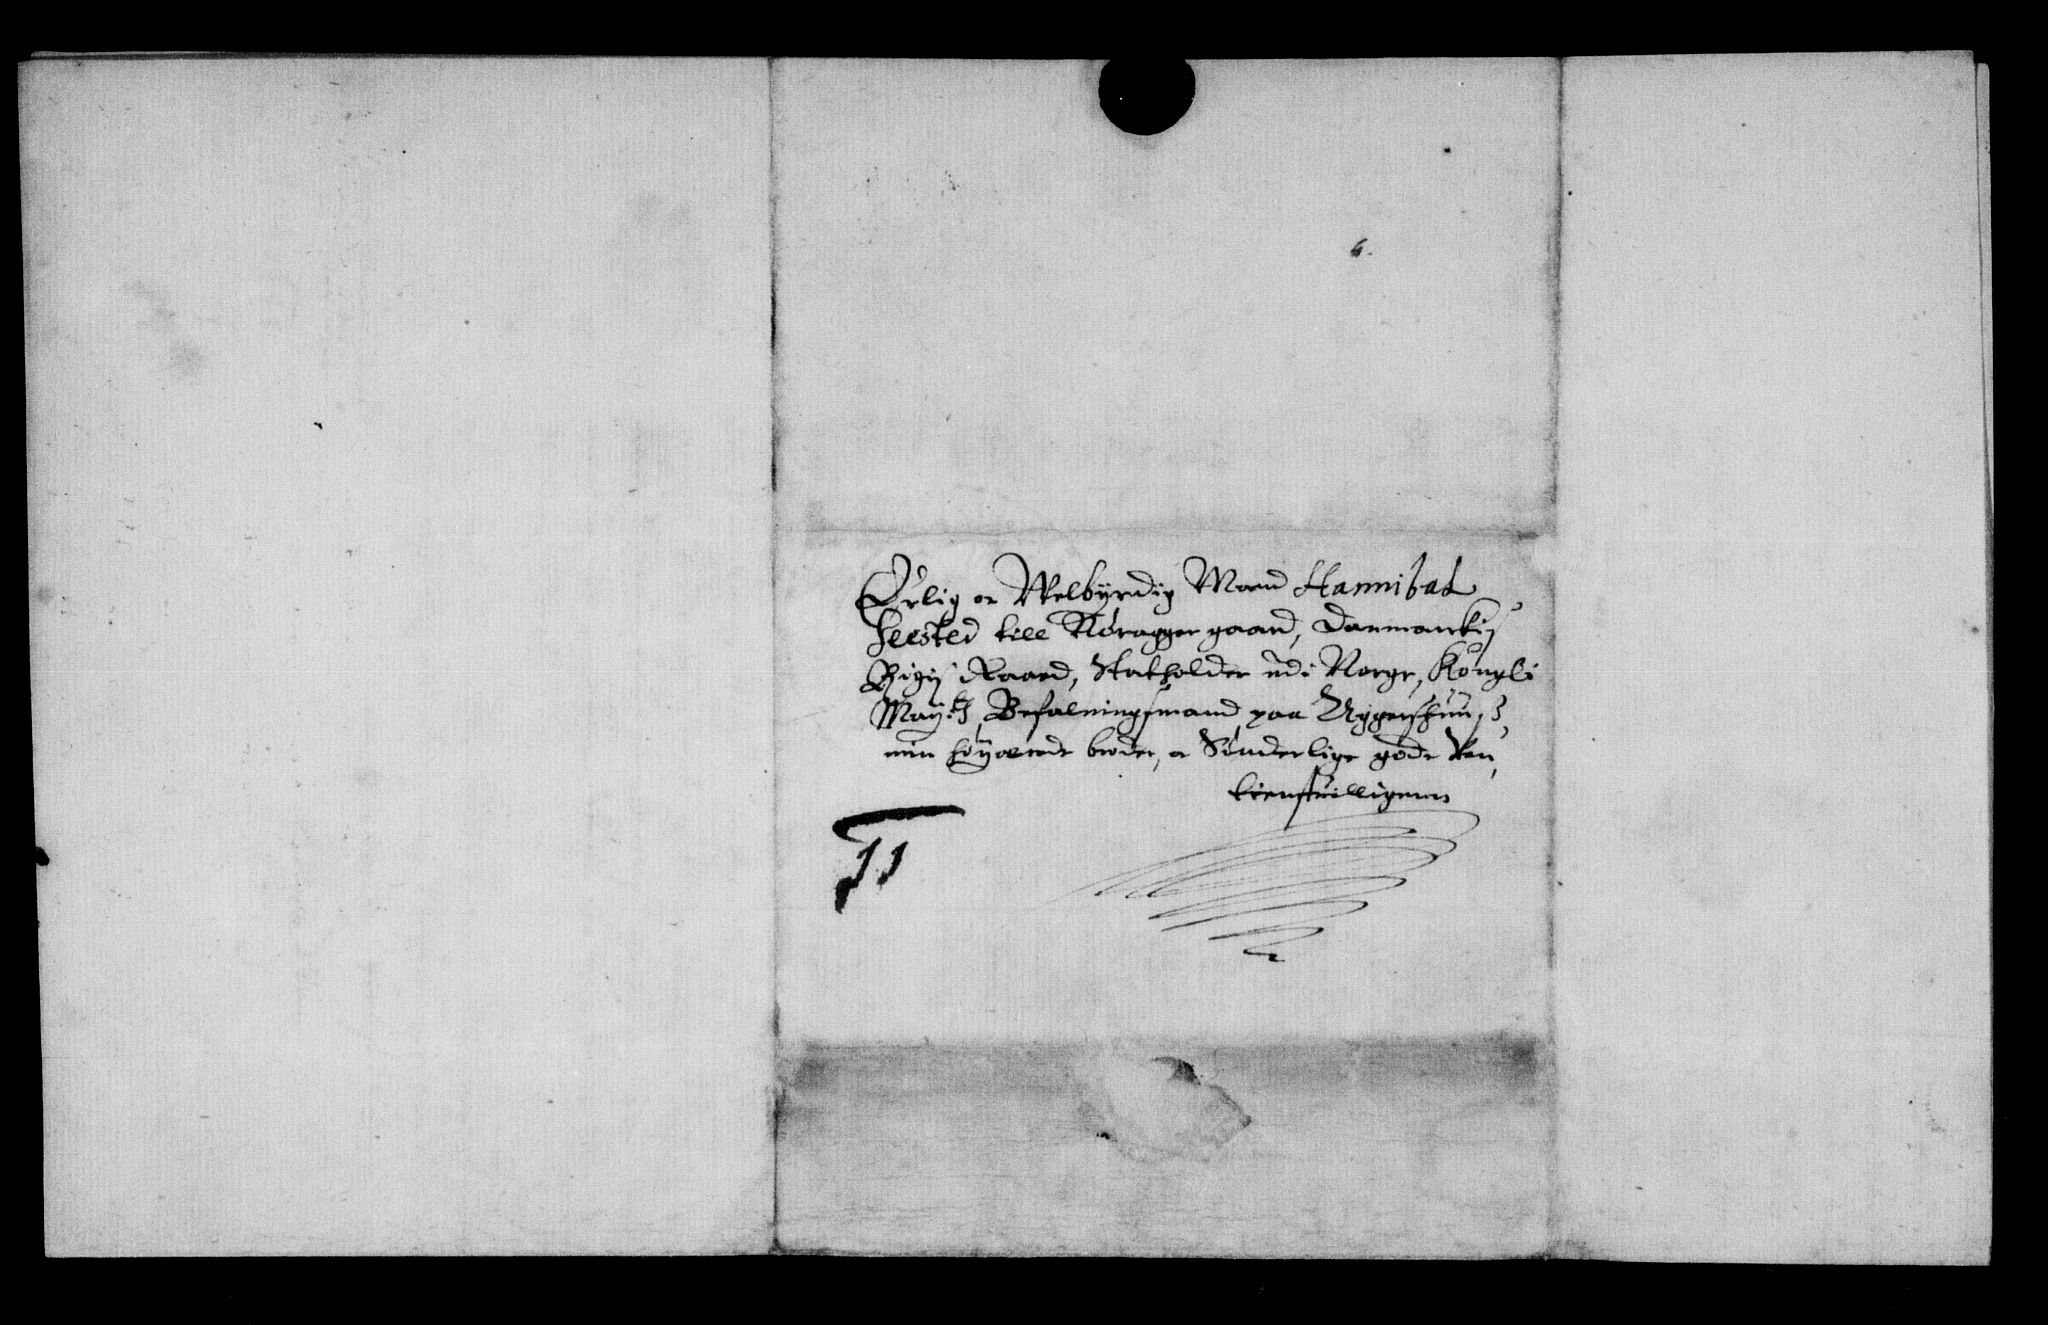 6.
Erlig oc Welbÿrdig Mand Hannibal
Seested till Nøragger gaard, Danmarckis
Rigis Raad, Statholder udi Norge, Kongli
Maÿ:tz Befalningsmand paa Aggershuuss,
min høÿærede broder, oc Sønderlige gode Ven,
tienstuilligenn